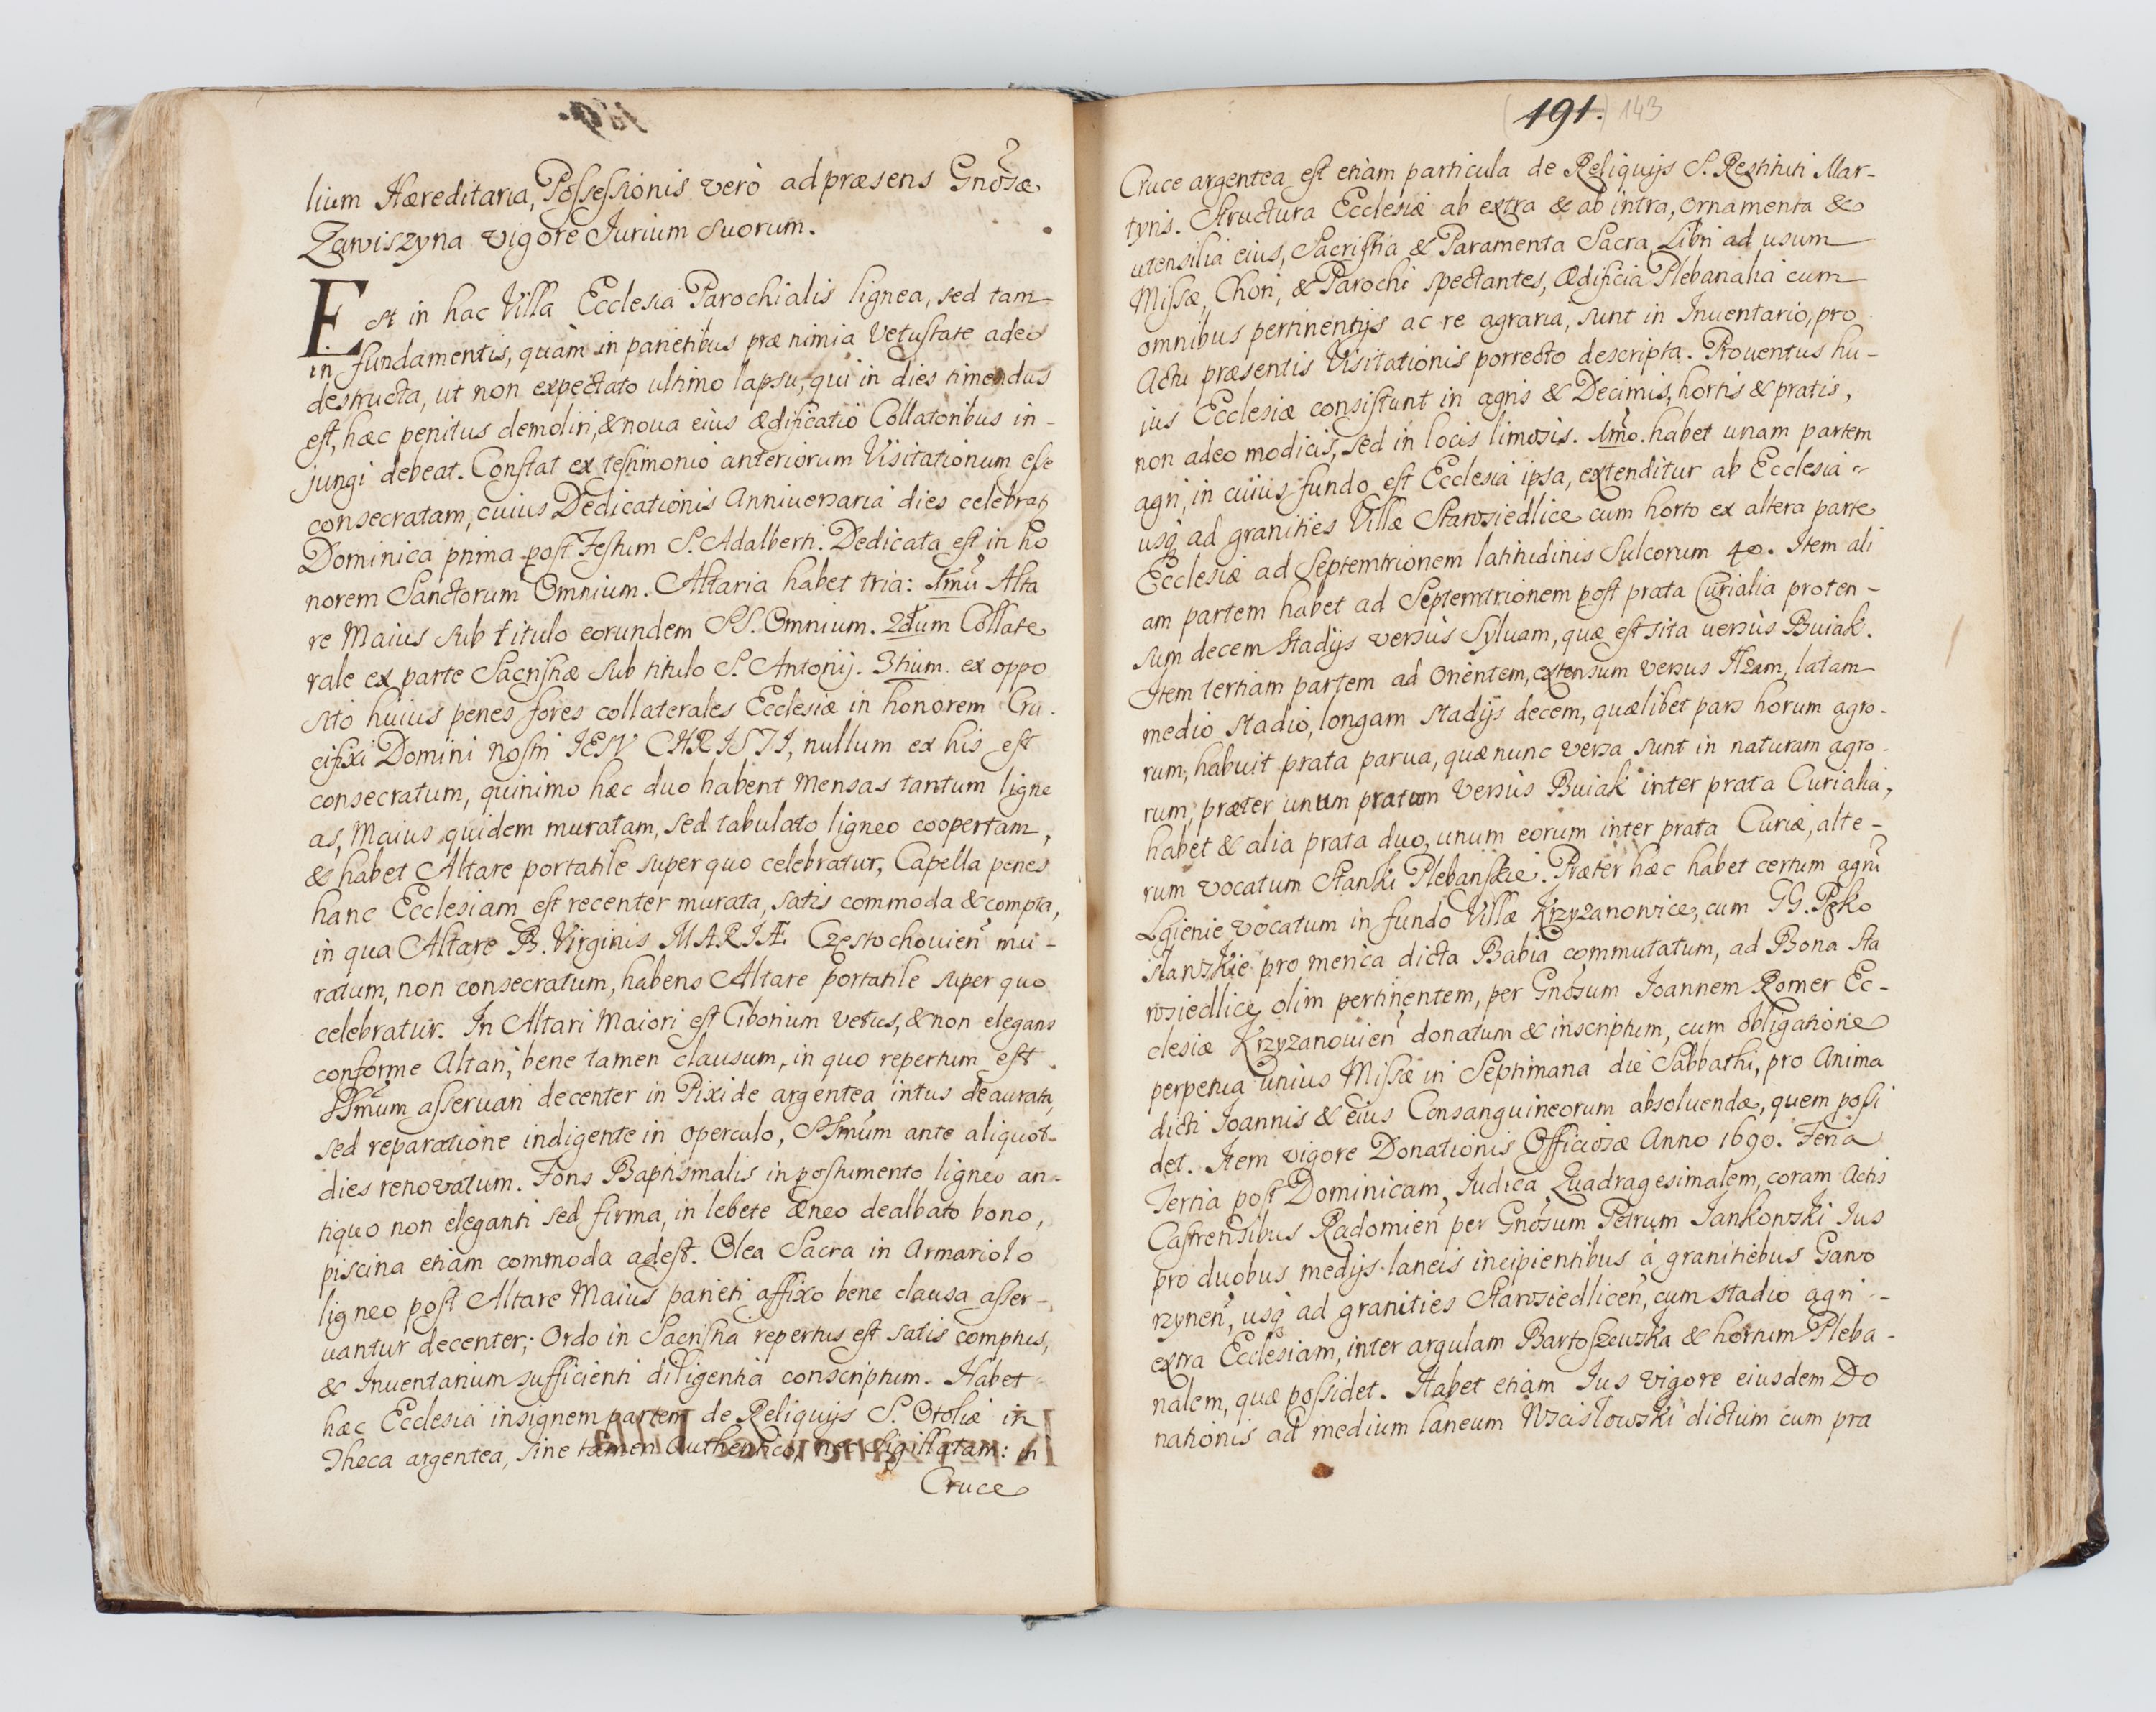 lium Hæreditaria, Possessionis verò ad præsens Gnosæ
Zawiszyna vigore Iurium suorum.
Est in hac Villa Ecclesia Parochialis lignea, sed tam
in fundamentis, quàm in parietibus præ nimia vetustate adeo
destructa, ut non expectato ultimo lapsu, qui in dies timendus
est, hæc penitus demoliri, & noua eius ædificatio Collatoribus in-
jungi debeat. Constat ex testimonio anteriorum Visitationum esse
consecratam, cuius Dedicationis Anniuersaria dies celebratʒ
Dominica prima post Festum S. Adalberti. Dedicata est in ho
norem Sanctorum Omnium. Altaria habet tria: 1mũ Alta
re Maius sub titulo eorundem SS. Omnium. 2dum Collate
rale ex parte Sacristiæ sub titulo S. Antonij. 3tium. ex oppo
sito huius penes fores collaterales Ecclesiæ in honorem Cru-
cifixi Domini nostri IESV CHRISTI, nullum ex his est
consecratum, quinimo hæc duo habent mensas tantum ligne
as, Maius quidem muratam, sed tabulato ligneo coopertam,
& habet Altare portatile super quo celebratur, Capella penes
hanc Ecclesiam est recenter murata, satis commoda & compta,
in qua Altare B. Virginis MARIÆ Częstochouien̄ mu-
ratum, non consecratum, habens Altare portatile super quo
celebratur. In Altari Maiori est Ciborium vetus, & non elegans
conforme Altari, bene tamen clausum, in quo repertum est
SSmum asseruari decenter in Pixide argentea intus deaurata,
sed reparatione indigente in operculo, SSmum ante aliquot
dies renovatum. Fons Baptismalis in postumento ligneo an-
tiquo non eleganti sed firma, in lebete æneo dealbato bono,
piscina etiam commoda adest. Olea Sacra in Armariolo
ligneo post Altare Maius parieti affixo bene clausa asser-
uantur decenter; Ordo in Sacristia repertus est satis comptus,
& Inuentarium sufficienti diligentia conscriptum. Habet
hæc Ecclesia insignem partem de Reliquijs S. Otoliæ in
Theca argentea, sine tamen authentico, nec sigillatam: in
Cruce
191. 143
Cruce argentea est etiam particula de Reliquijs S. Restituti Mar-
tyris. Structura Ecclesiæ ab extra & ab intra, ornamenta &
utensilia eius, Sacristia & Paramenta Sacra, Libri ad usum
Missæ, Chori, & Parochi spectantes, Ædificia Plebanalia cum
omnibus pertinentijs ac re agraria, sunt in Inuentario, pro
Actu præsentis Visitationis porrecto descripta. Prouentus hu-
ius Ecclesiæ consistunt in agris & Decimis, hortis & pratis,
non adeo modicis, sed in locis limosis. 1mo. habet unam partem
agri, in cuius fundo est Ecclesia ipsa, extenditur ab Ecclesia
usq̨ ad granities Villæ Starosiedlice cum horto ex altera parte
Ecclesiæ ad Septemtrionem latitudinis Sulcorum 40. Item ali
am partem habet ad Septemtrionem post prata Curialia proten-
sum decem Stadijs versùs Syluam, quæ est sita uersùs Buiak.
Item tertiam partem ad Orientem, extensum versus Iłzam, latam
medio stadio, longam stadijs decem, quælibet pars horum agro-
rum, habuit prata parua, quæ nunc versa sunt in naturam agro-
rum, præter unum pratum versùs Buiak inter prata Curialia,
habet & alia prata duo, unum eorum inter prata Curiæ, alte-
rum vocatum Stanki Plebańskie. Præter hæc habet certum agrũ
Łgienie vocatum in fundo Villæ Krzyzanowice, cum GG. Pęko
sławskie pro merica dicta Babia commutatum, ad Bona Sta
rosiedlicę olim pertinentem, per Gnosum Ioannem Romer Ec-
clesiæ Krzyzanouien̄ donatum & inscriptum, cum obligatione
perpetua unius Missæ in Septimana die Sabbathi, pro Anima
dicti Ioannis & eius Consanguineorum absoluenda, quem possi
det. Item vigore Donationis Officiosæ Anno 1690. Feria
Tertia post Dominicam Iudica Quadragesimalem, coram Actis
Castrensibus Radomien̄ per Gnosum Petrum Iankowski Ius
pro duobus medijs laneis incipientibus à granitiebus Gaw
rzynen̄, usq̨ ad granities Starosiedlicen̄, cum stadio agri
extra Ecclesiam, inter argulam Bartoszewska & hortum Pleba-
nalem, quæ possidet. Habet etiam Ius vigore eiusdem Do
nationis ad medium laneum Wscisłowski dictum cum pra